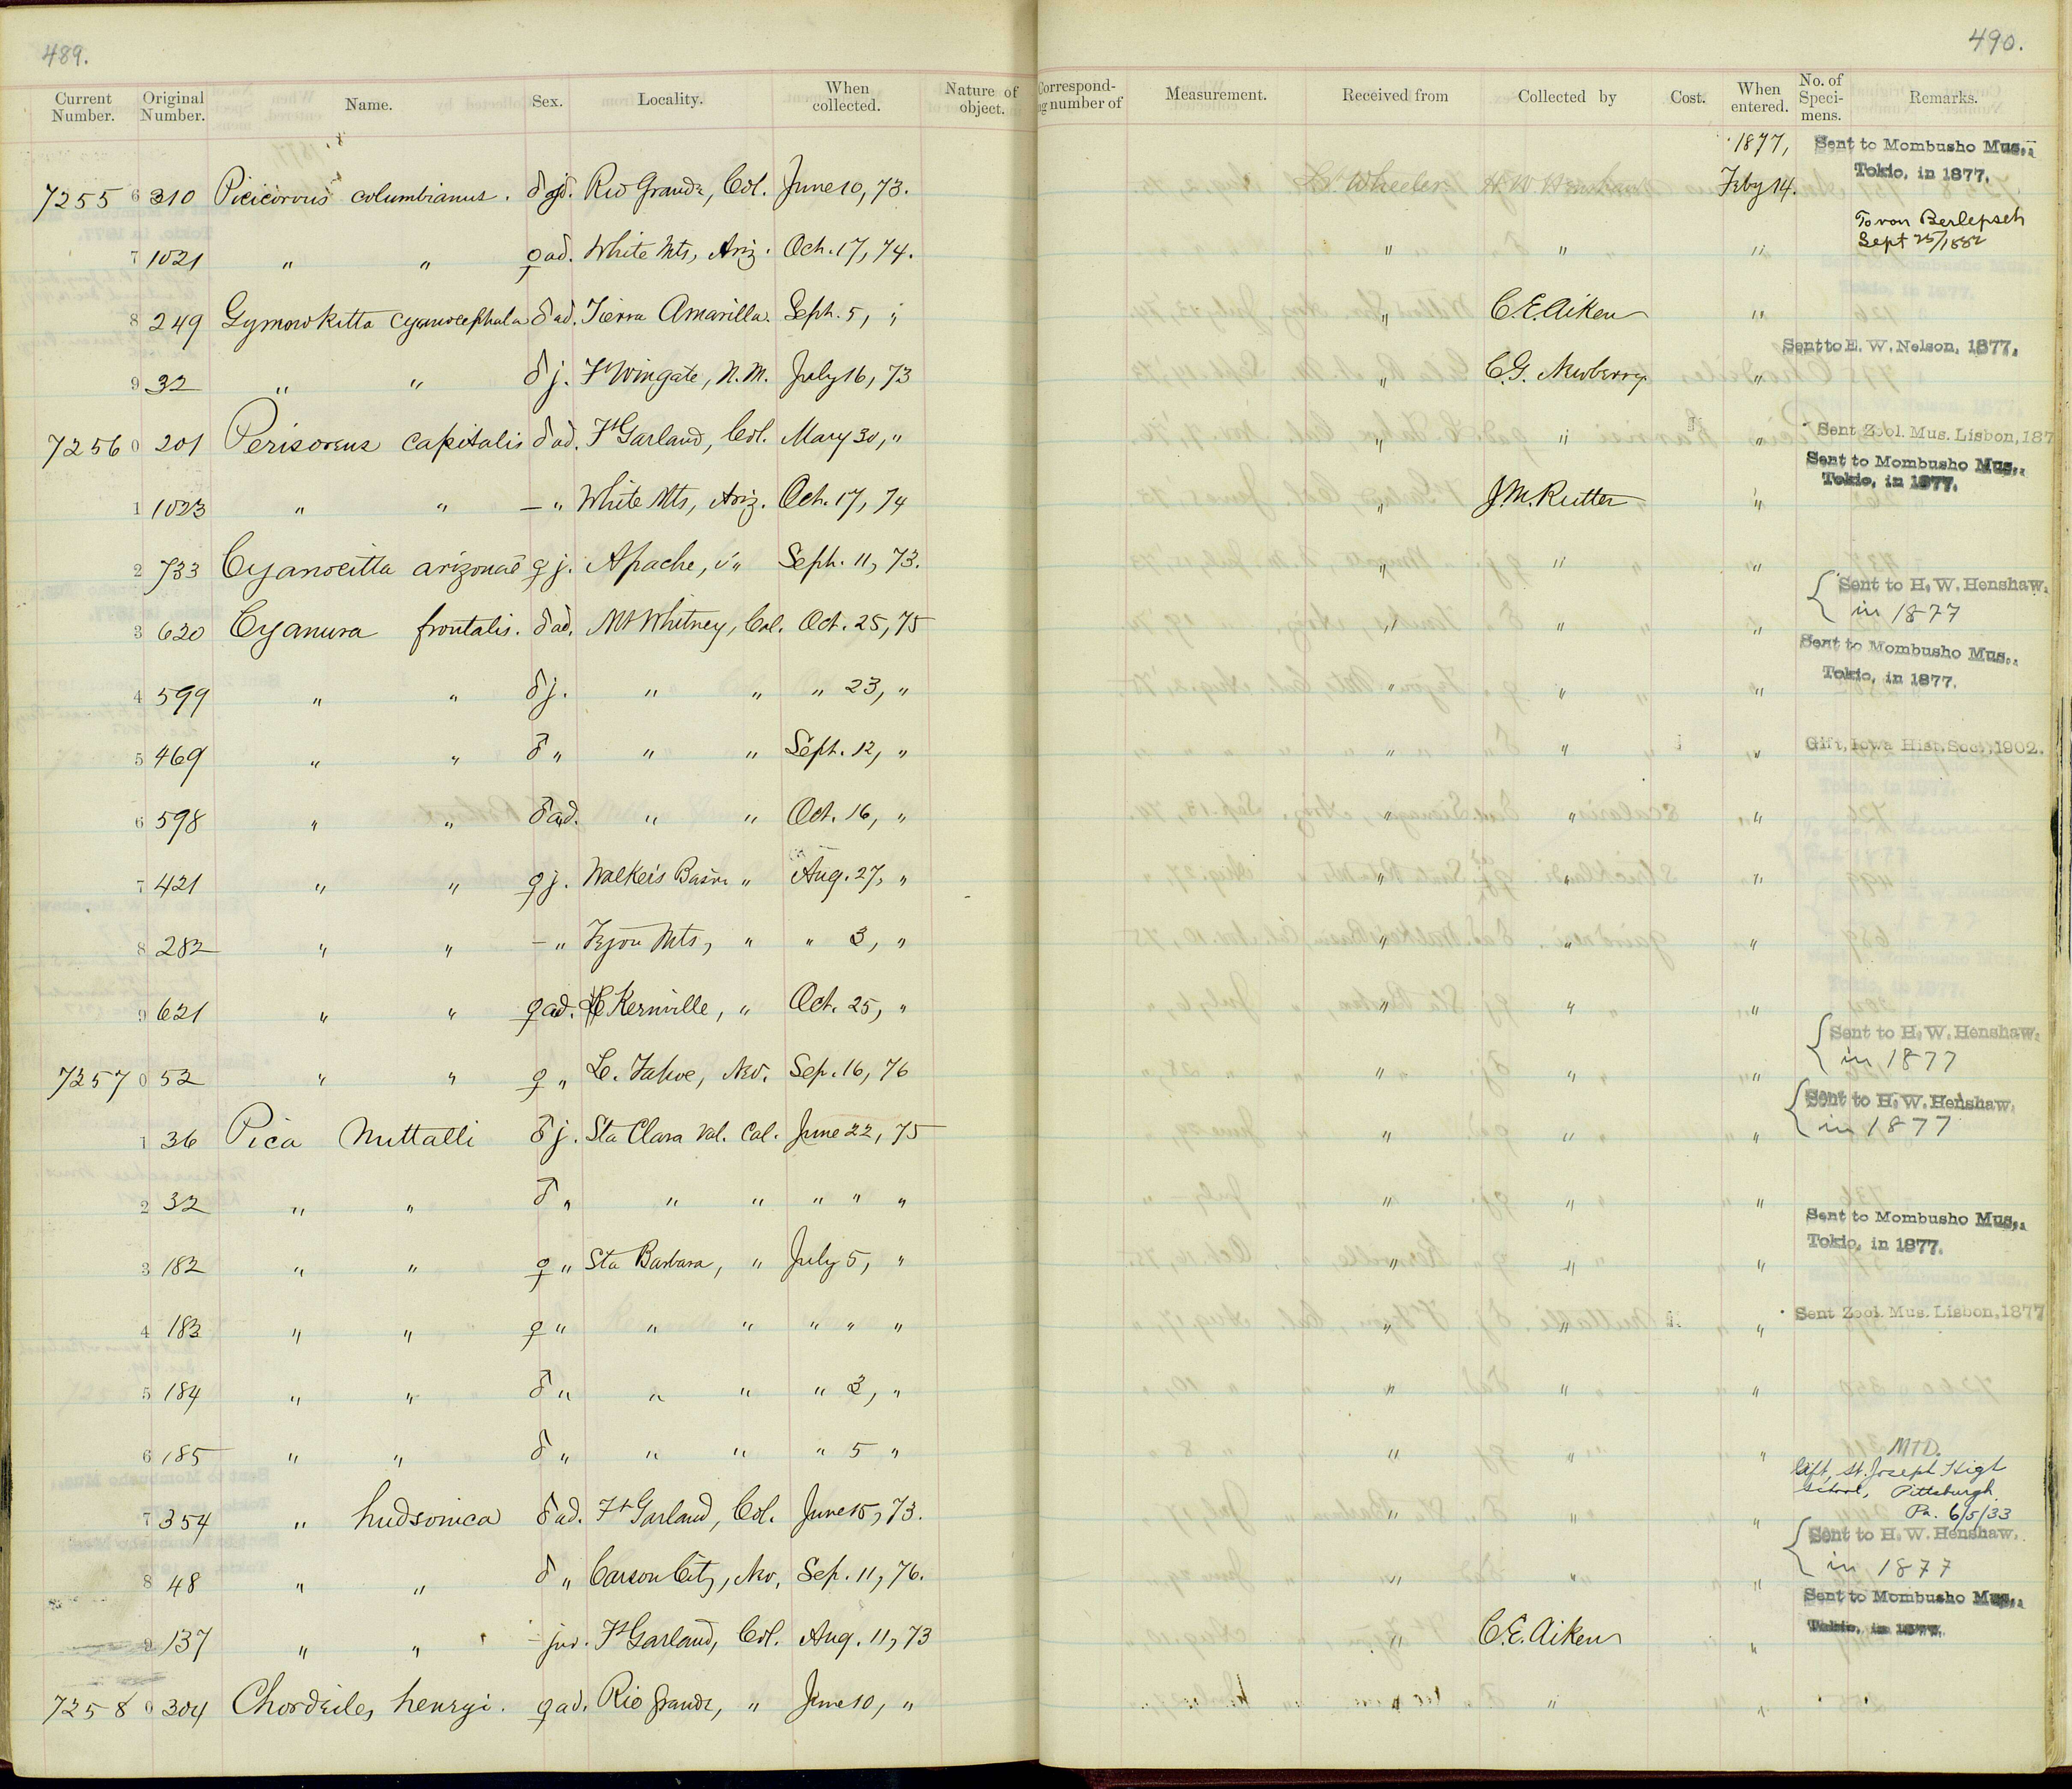 489.
490.
Current Number. Original Number. Name. Sex. Locality. When collected. Nature of object. Correspond- number of Measurement. Received from Collected by Cost. When entered. No. of Speci- mens. Remarks.
1877, Sent to Mombusho Mus., Tokio, in 1877.
7255 6 310 Picicorvus columbianus. ♂ ad. Rio Grande, Col. June 10, 73. Lt. Wheeler H W Henshaw Feby 14.
7 1021 " " ♀ ad. White Mts, Ariz. Oct. 17, 74. " " " To von Berlepsch Sept 25/1882
8 249 Gymnokitta cyanocephala ♂ ad. Tierra Amarilla. Sept. 5, " " C. E. Aiken "
9 32 " " ♂ j. Ft Wingate, N.M. July 16, 73 " C. G. Newberry. " Sent to E. W. Nelson, 1877.
7256 0 201 Perisoreus capitalis ♂ ad. Ft Garland, Col. May 30, " " " " Sent Zool. Mus. Lisbon, 187
1 1023 " " — " White Mts, Ariz. Oct. 17, 74 " J. M. Rutter " Sent to Mombusho Mus., Tokio, in 1877.
2 733 Cyanocitta arizonae ♀ j. Apache, " Sept. 11, 73. " " "
3 620 Cyanura frontalis. ♂ ad. Mt Whitney, Cal. Oct. 25, 75 " " " Sent to H. W. Henshaw. in 1877
4 599 " " ♂ j. " " " 23, " " " " Sent to Mombusho Mus., Tokio, in 1877.
5 469 " " ♂ " " " Sept. 12, " " " " Gift, Iowa Hist. Soc., 1902.
6 598 " " ♂ ad. " " Oct. 16, " " " "
7 421 " " ♀ j. Walker's Basin " Aug. 27, " " " "
8 282 " " — " Tejon Mts, " " 3, " " " "
9 621 " " ♀ ad. Kernville, " Oct. 25, " " " "
7257 0 52 " " ♀ " L. Tahoe, Nev. Sep. 16, 76 " " " Sent to H. W. Henshaw. in 1877
1 36 Pica Nuttalli ♂ j. Sta Clara Val. Cal. June 22, 75 " " " Sent to H. W. Henshaw. in 1877
2 32 " " ♂ " " " " " " " " "
3 182 " " ♀ " Sta Barbara, " July 5, " " " " Sent to Mombusho Mus., Tokio, in 1877.
4 183 " " ♀ " " " " " " " " " Sent Zool. Mus. Lisbon, 1877
5 184 " " ♂ " " " " 3, " " " "
6 185 " " ♂ " " " " 5 " " " " MTD.
7 354 " hudsonica ♂ ad. Ft Garland, Col. June 15, 73. " " " Gift, St. Joseph High School, Pittsburgh Pa. 6/5/33
8 48 " " ♂ " Carson City, Nev. Sep. 11, 76. " " " Sent to H. W. Henshaw. in 1877
9 137 " " — juv. Ft Garland, Col. Aug. 11, 73 " C. E. Aiken " Sent to Mombusho Mus., Tokio, in 1877.
7258 0 304 Chordeiles henryi. ♀ ad. Rio Grande, " June 10, " " "